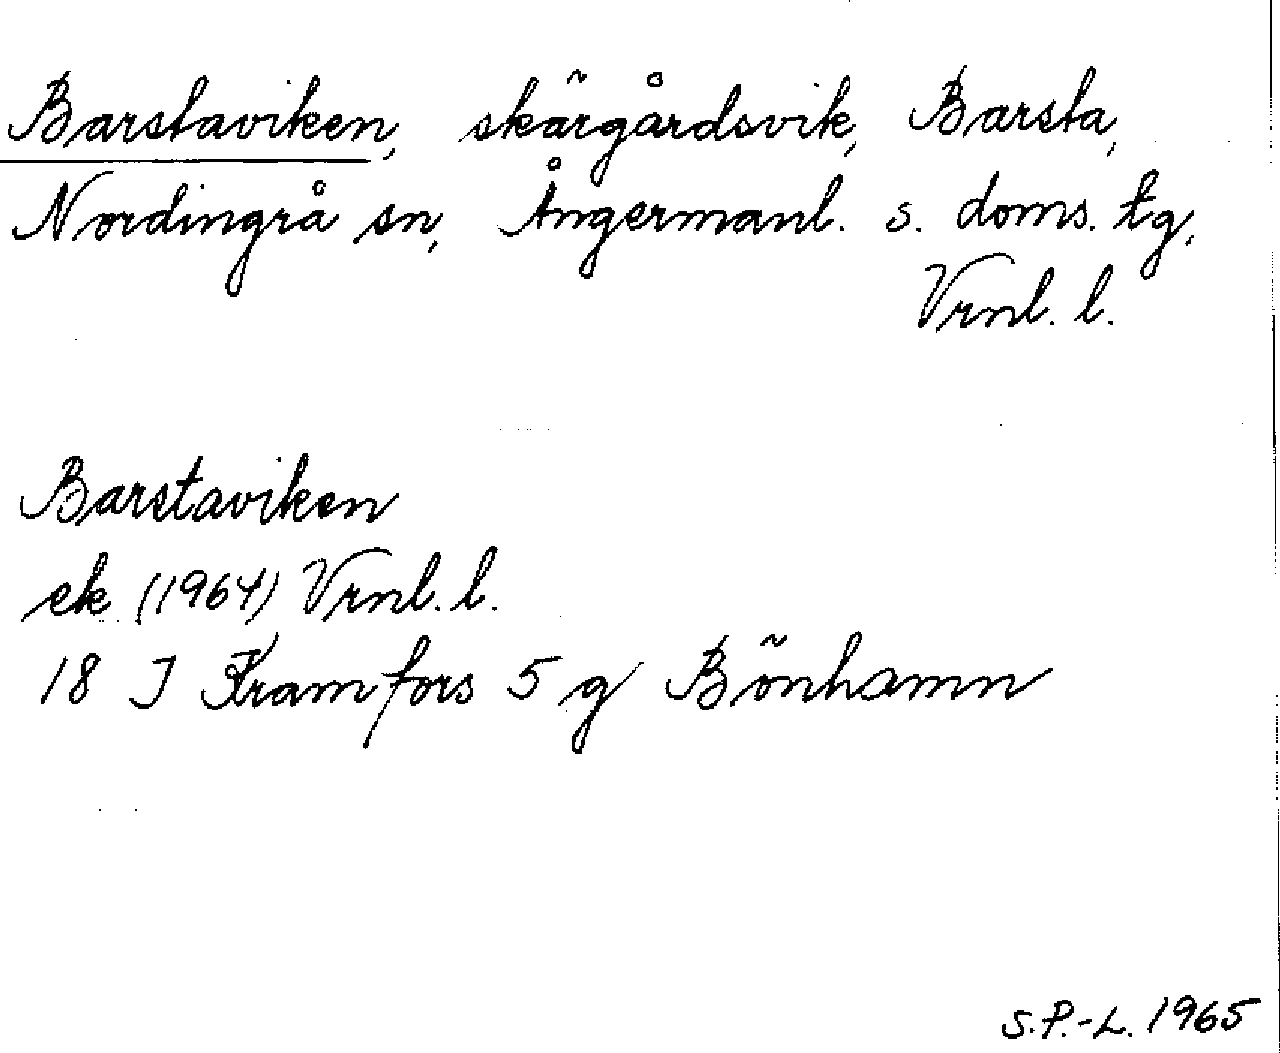 Barstaviken, skärgårdsvik, Barsta,
Nordingrå sn, Ångermanl. s. doms. tg,
Vrnl. l.
Barstaviken
ek (1964) Vrnl. l.
18 J Kramfors 5 g Bönhamn
S.P.-L. 1965